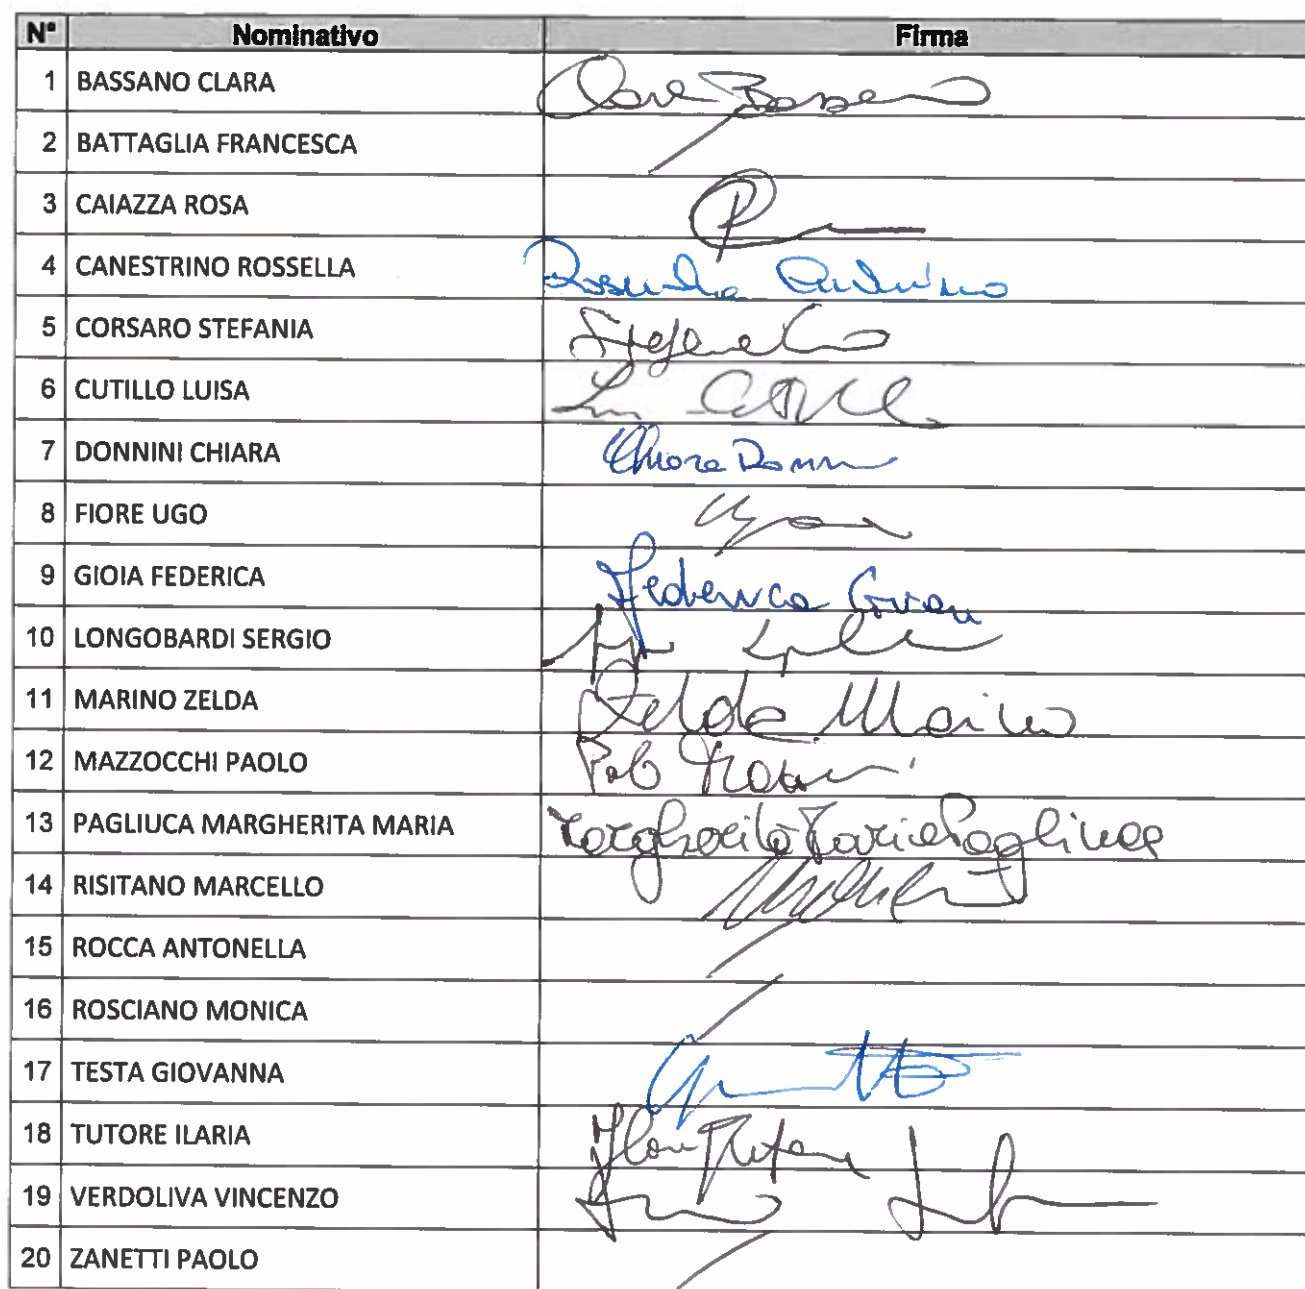 N° Nominativo Firma
1 BASSANO CLARA
2 BATTAGLIA FRANCESCA
3 CAIAZZA ROSA
4 CANESTRINO ROSSELLA
5 CORSARO STEFANIA
6 CUTILLO LUISA
7 DONNINI CHIARA Chiara Donnini
8 FIORE UGO
9 GIOIA FEDERICA Federica Gioia
10 LONGOBARDI SERGIO
11 MARINO ZELDA Zelda Marino
12 MAZZOCCHI PAOLO
13 PAGLIUCA MARGHERITA MARIA Margherita Maria Pagliuca
14 RISITANO MARCELLO
15 ROCCA ANTONELLA
16 ROSCIANO MONICA
17 TESTA GIOVANNA
18 TUTORE ILARIA
19 VERDOLIVA VINCENZO
20 ZANETTI PAOLO